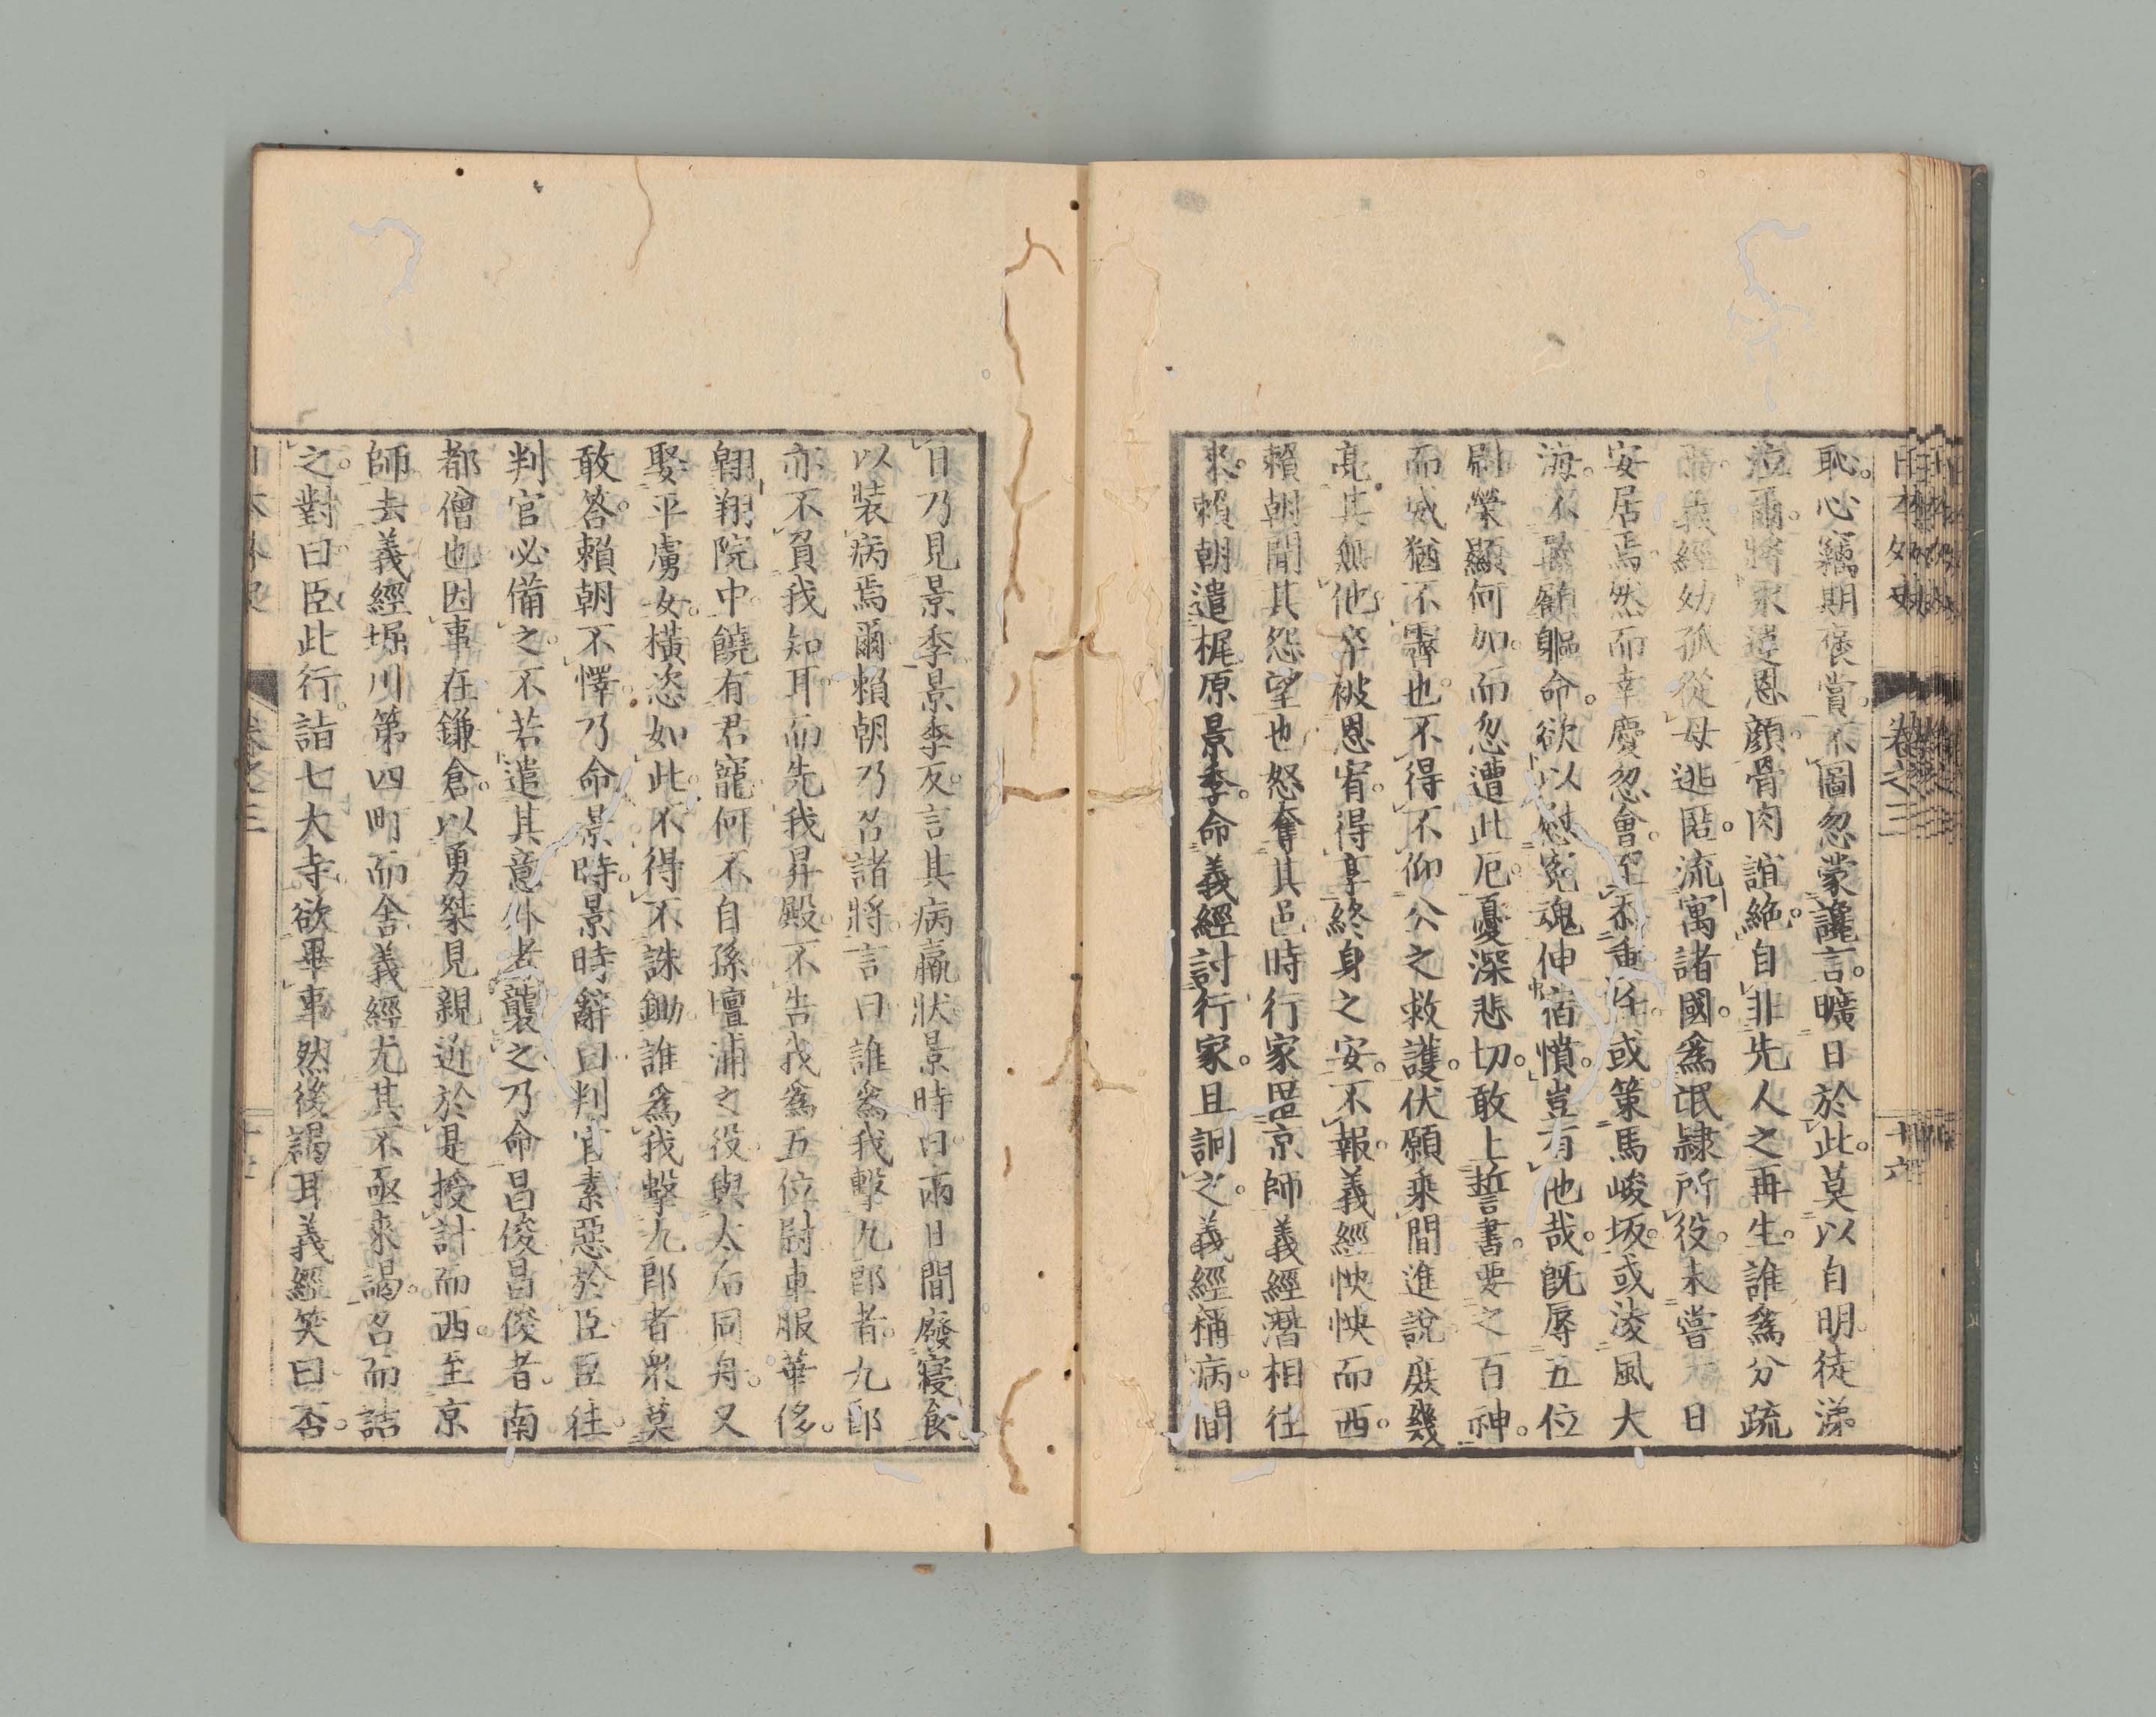 日本外史
卷之三
十六
恥。心竊期褒賞。不圖忽蒙讒言。曠日於此。莫以自明。徒涕
泣爾。將永違恩顏。骨肉誼絶。自非先人之再生。誰爲分疏
義經幼孤。從母逃匿。流寓諸國。爲氓隷所役。未嘗一日
安居焉。然而幸慶忽會。至承重任。或策馬峻坂。或淩風大
海。不敢顧軀命。欲以慰寃魂伸宿憤。豈有他哉。既辱五位
尉。榮顯何如。而忽遭此厄。憂深悲切。敢上誓書。要之百神。
而威猶不霽也。不得不仰公之救護。伏願乘間進說。庶幾
亮其無他。卒被恩宥。得享終身之安。不報。義經怏怏而西。
賴朝聞其怨望也。怒奪其邑。時行家匿京師。義經潛相往
來。賴朝遣梶原景季。命義經討行家。且詗之。義經稱病。間
日乃見景季。景季反。言其病羸狀。景時曰。兩日間廢寢食
以裝病焉爾。賴朝乃召諸將。言曰。誰爲我擊九郎者。九郎
亦不負我知耳。而先我昇殿。不告我爲五位尉。車服華侈。
翺翔院中。饒有君寵。何不自孫。壇浦之役。與太后同舟。又
娶平虜女。橫恣如此。不得不誅鋤。誰爲我擊九郎者。衆莫
敢答。賴朝不懌。乃命景時。景時辭曰。判官素惡於臣。臣往。
判官必備之。不若遣其意外者襲之。乃命昌俊。昌俊者。南
都僧也。因事在鎌倉。以勇桀見親近。於是授計而西。至京
師。去義經堀川第四町而舍。義經尤其不亟來謁。召而詰
之。對曰。臣此行。詣七大寺。欲畢事。然後謁耳。義經笑曰。否。
日本外史
卷之三